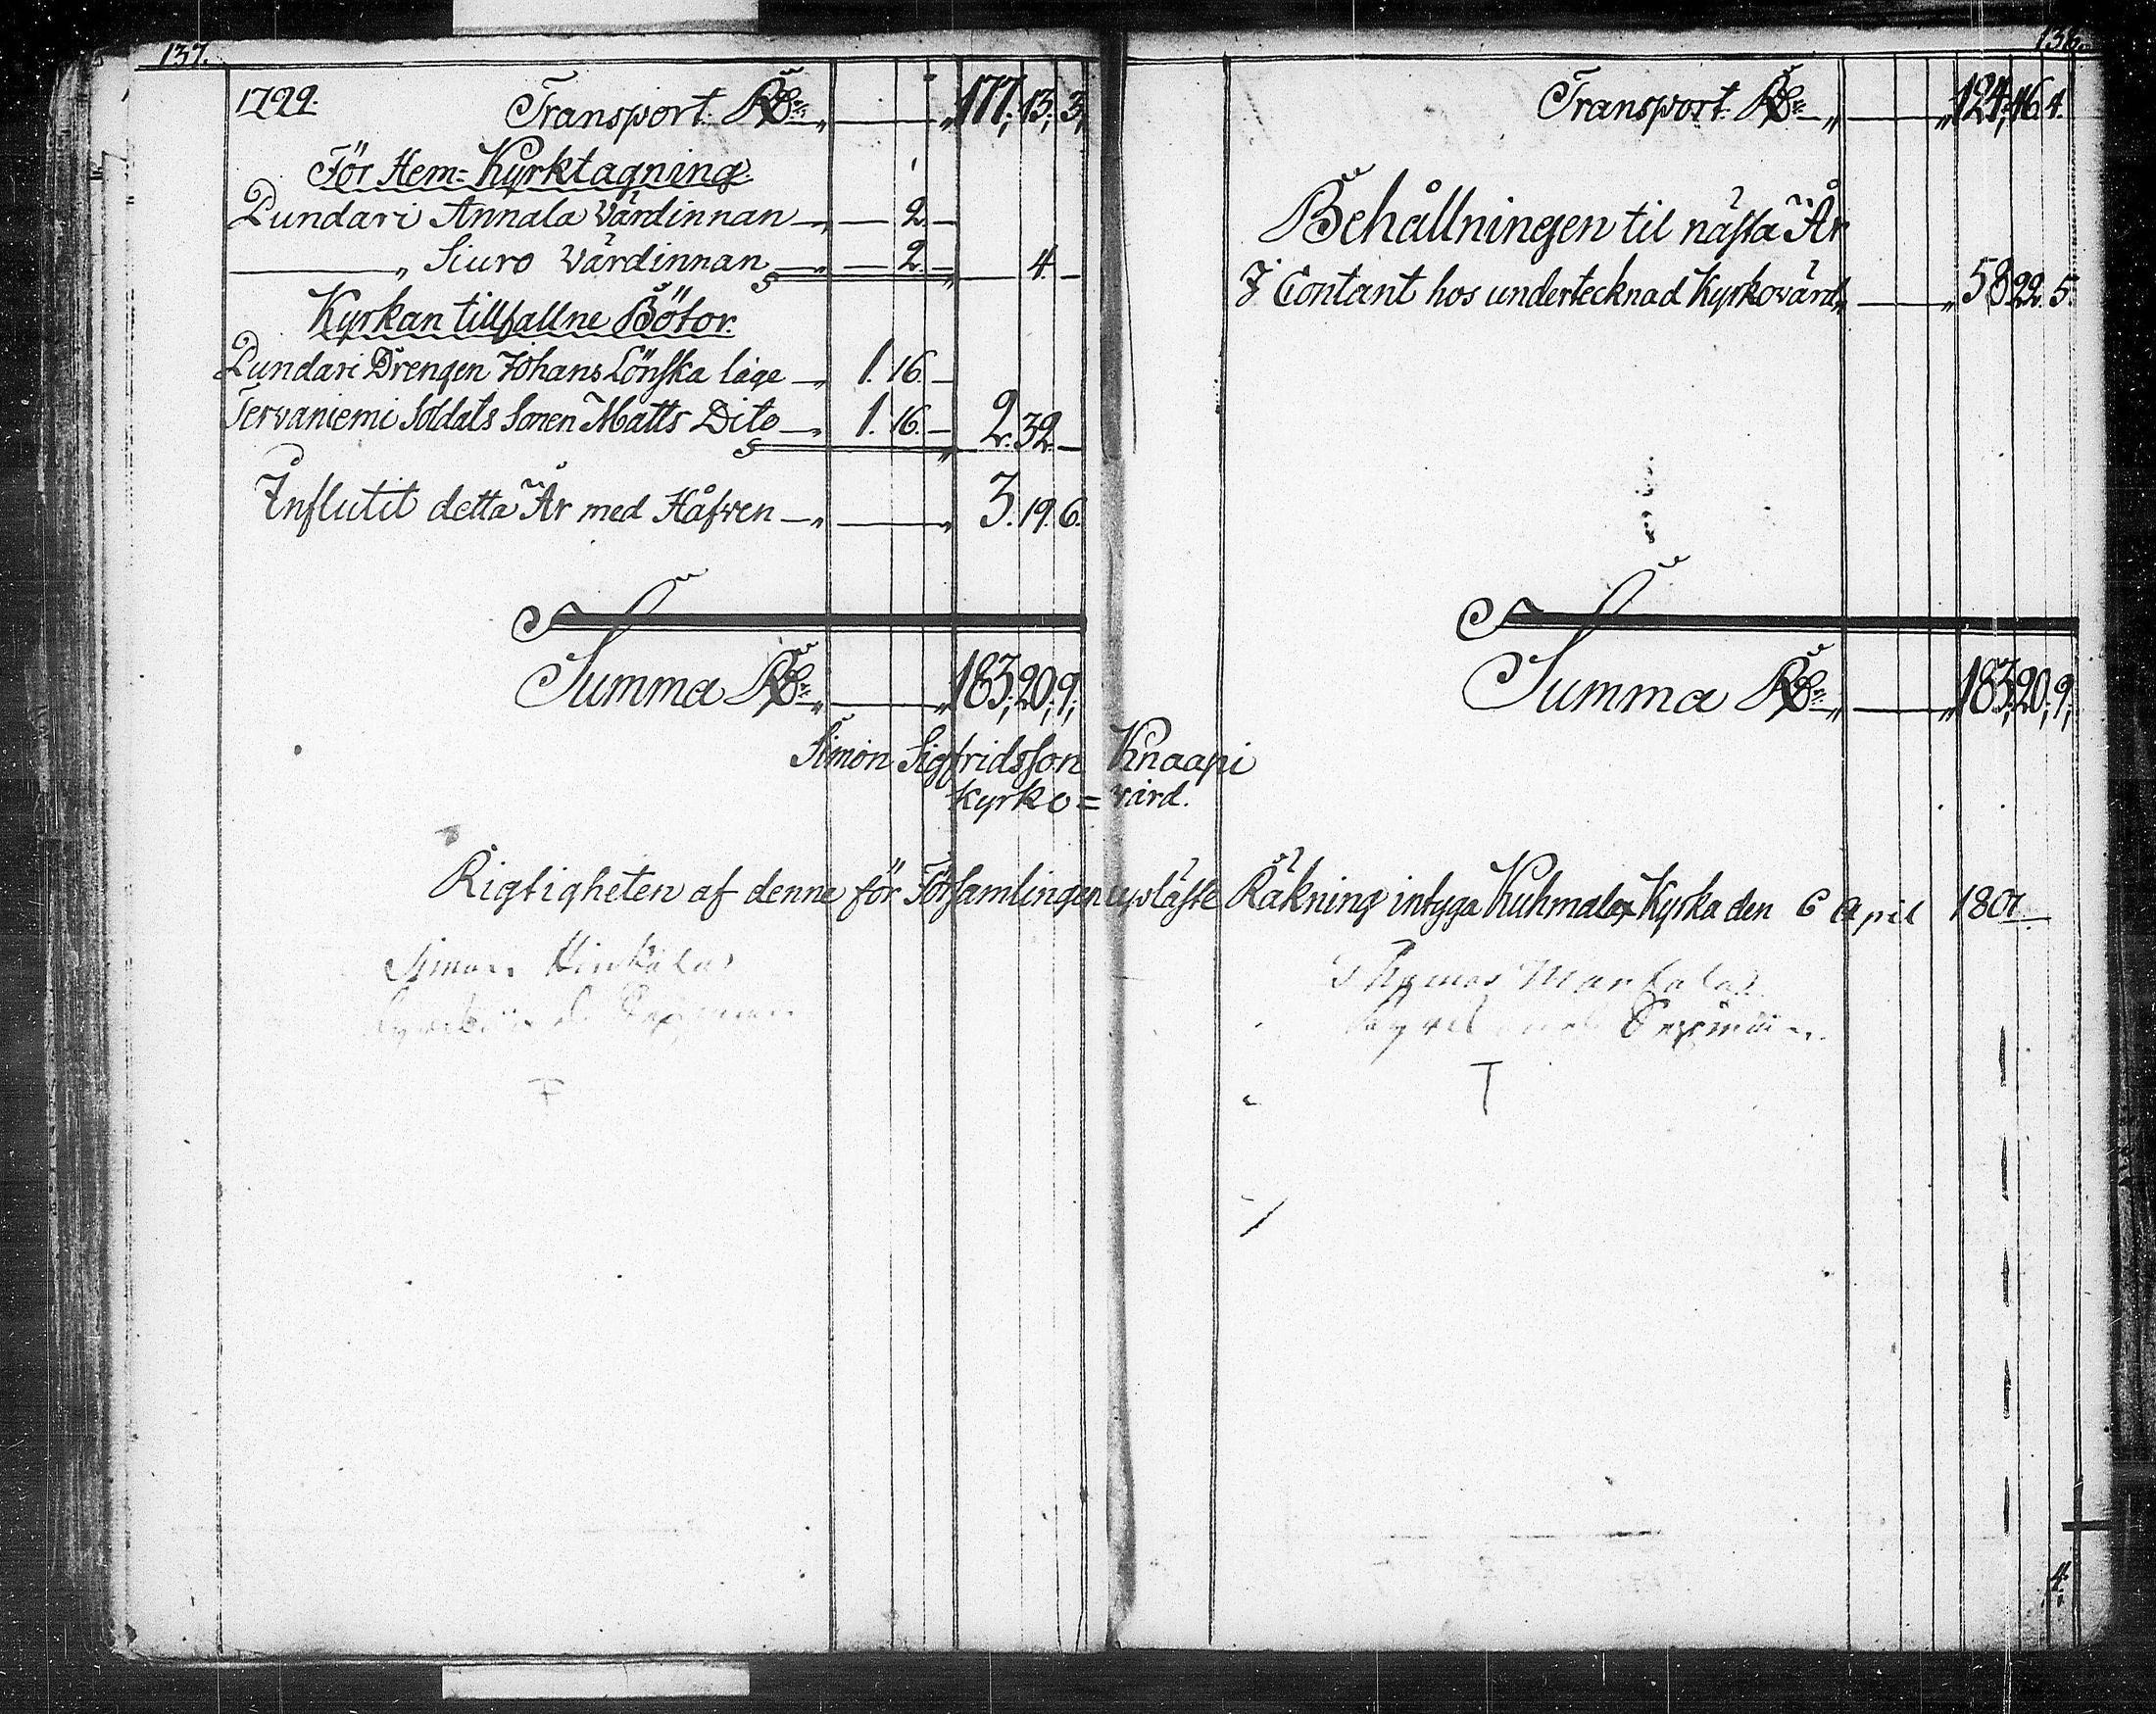 137.
1799. Transport Rd:r „ — „ 177; 13; 3;
För Hem-Kyrktagning
Pundari Annala Värdinnan — „ — 2. —
— „ Siuro Värdinnan — „ — 2. — „ — 4. —
Kyrkan tillfallne Böter.
Pundari Drengen Johans Lönska läge — „ 1. 16. —
Tervaniemi Soldats Sonen Matts Dito — „ 1. 16. — „ 2. 32. —
Influtit detta År med Håfven — „ — „ 3. 19. 6.
Summa Rd:r „ — „ 183; 20; 9;
138.
Transport Rd:r — „ — „ 124; 46. 4.
Behållningen til nästa År
I Contant hos undertecknad Kyrkovärd „ — „ 58 22. 5.
Summa Rd:r „ — „ 183; 20; 9;
Simon Sigfridsson Knaapi
Kyrko=värd.
Rigtigheten af denne för Församlingen upläste Räkning intyga Kuhmalax Kyrka den 6 April 1801.
Simon
Thomas
Sexman
T
4.